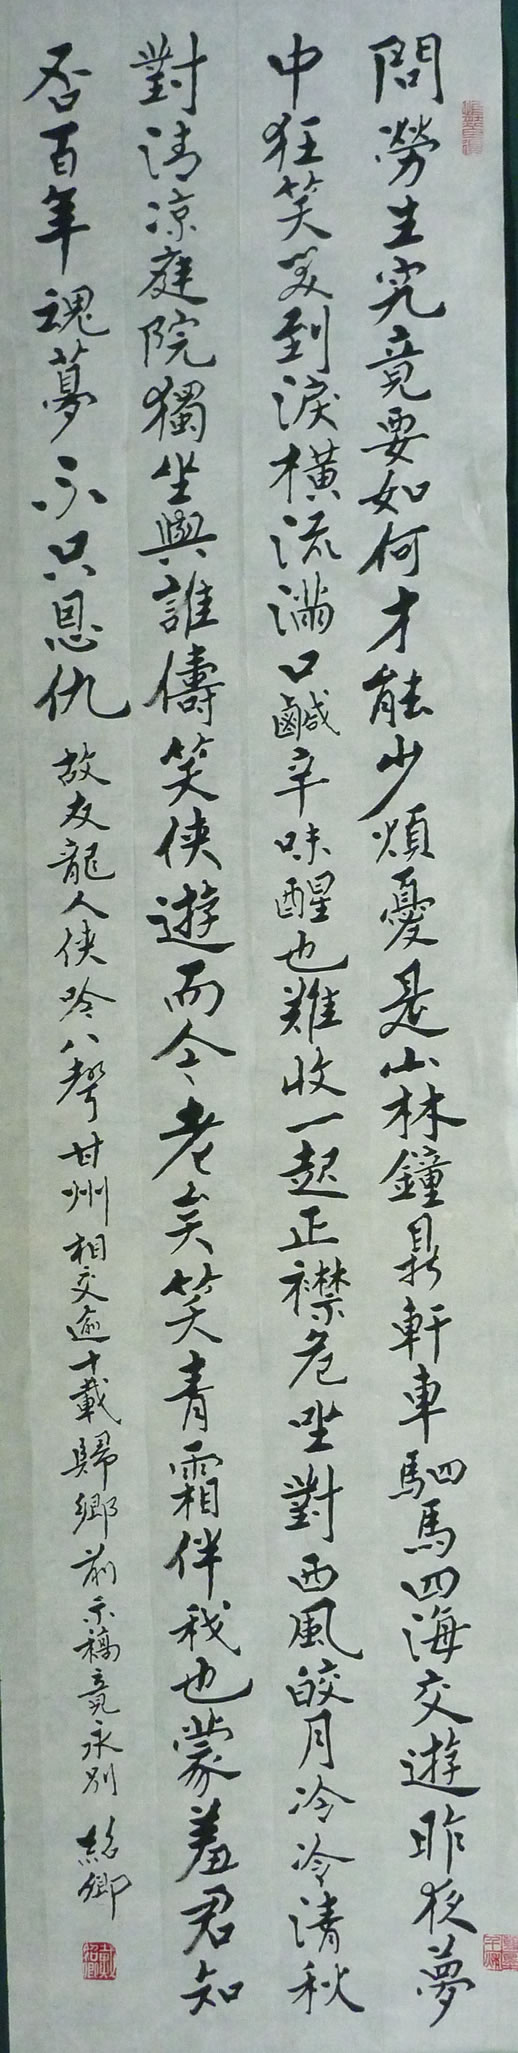 問勞生究竟要如何才能少煩憂是山林鐘鼎軒車駟馬四海交遊昨夜夢
中狂笑笑到淚橫流滿口鹹辛味醒也難收一起正襟危坐對西風皎月冷冷清秋
對清凉庭院獨坐與誰儔笑俠遊而今老矣笑青霜伴我也蒙羞君知
否百年魂夢不只恩仇
故友龍人俠吟八聲甘州相交逾十載歸鄉前示稿竟永別 紹卿